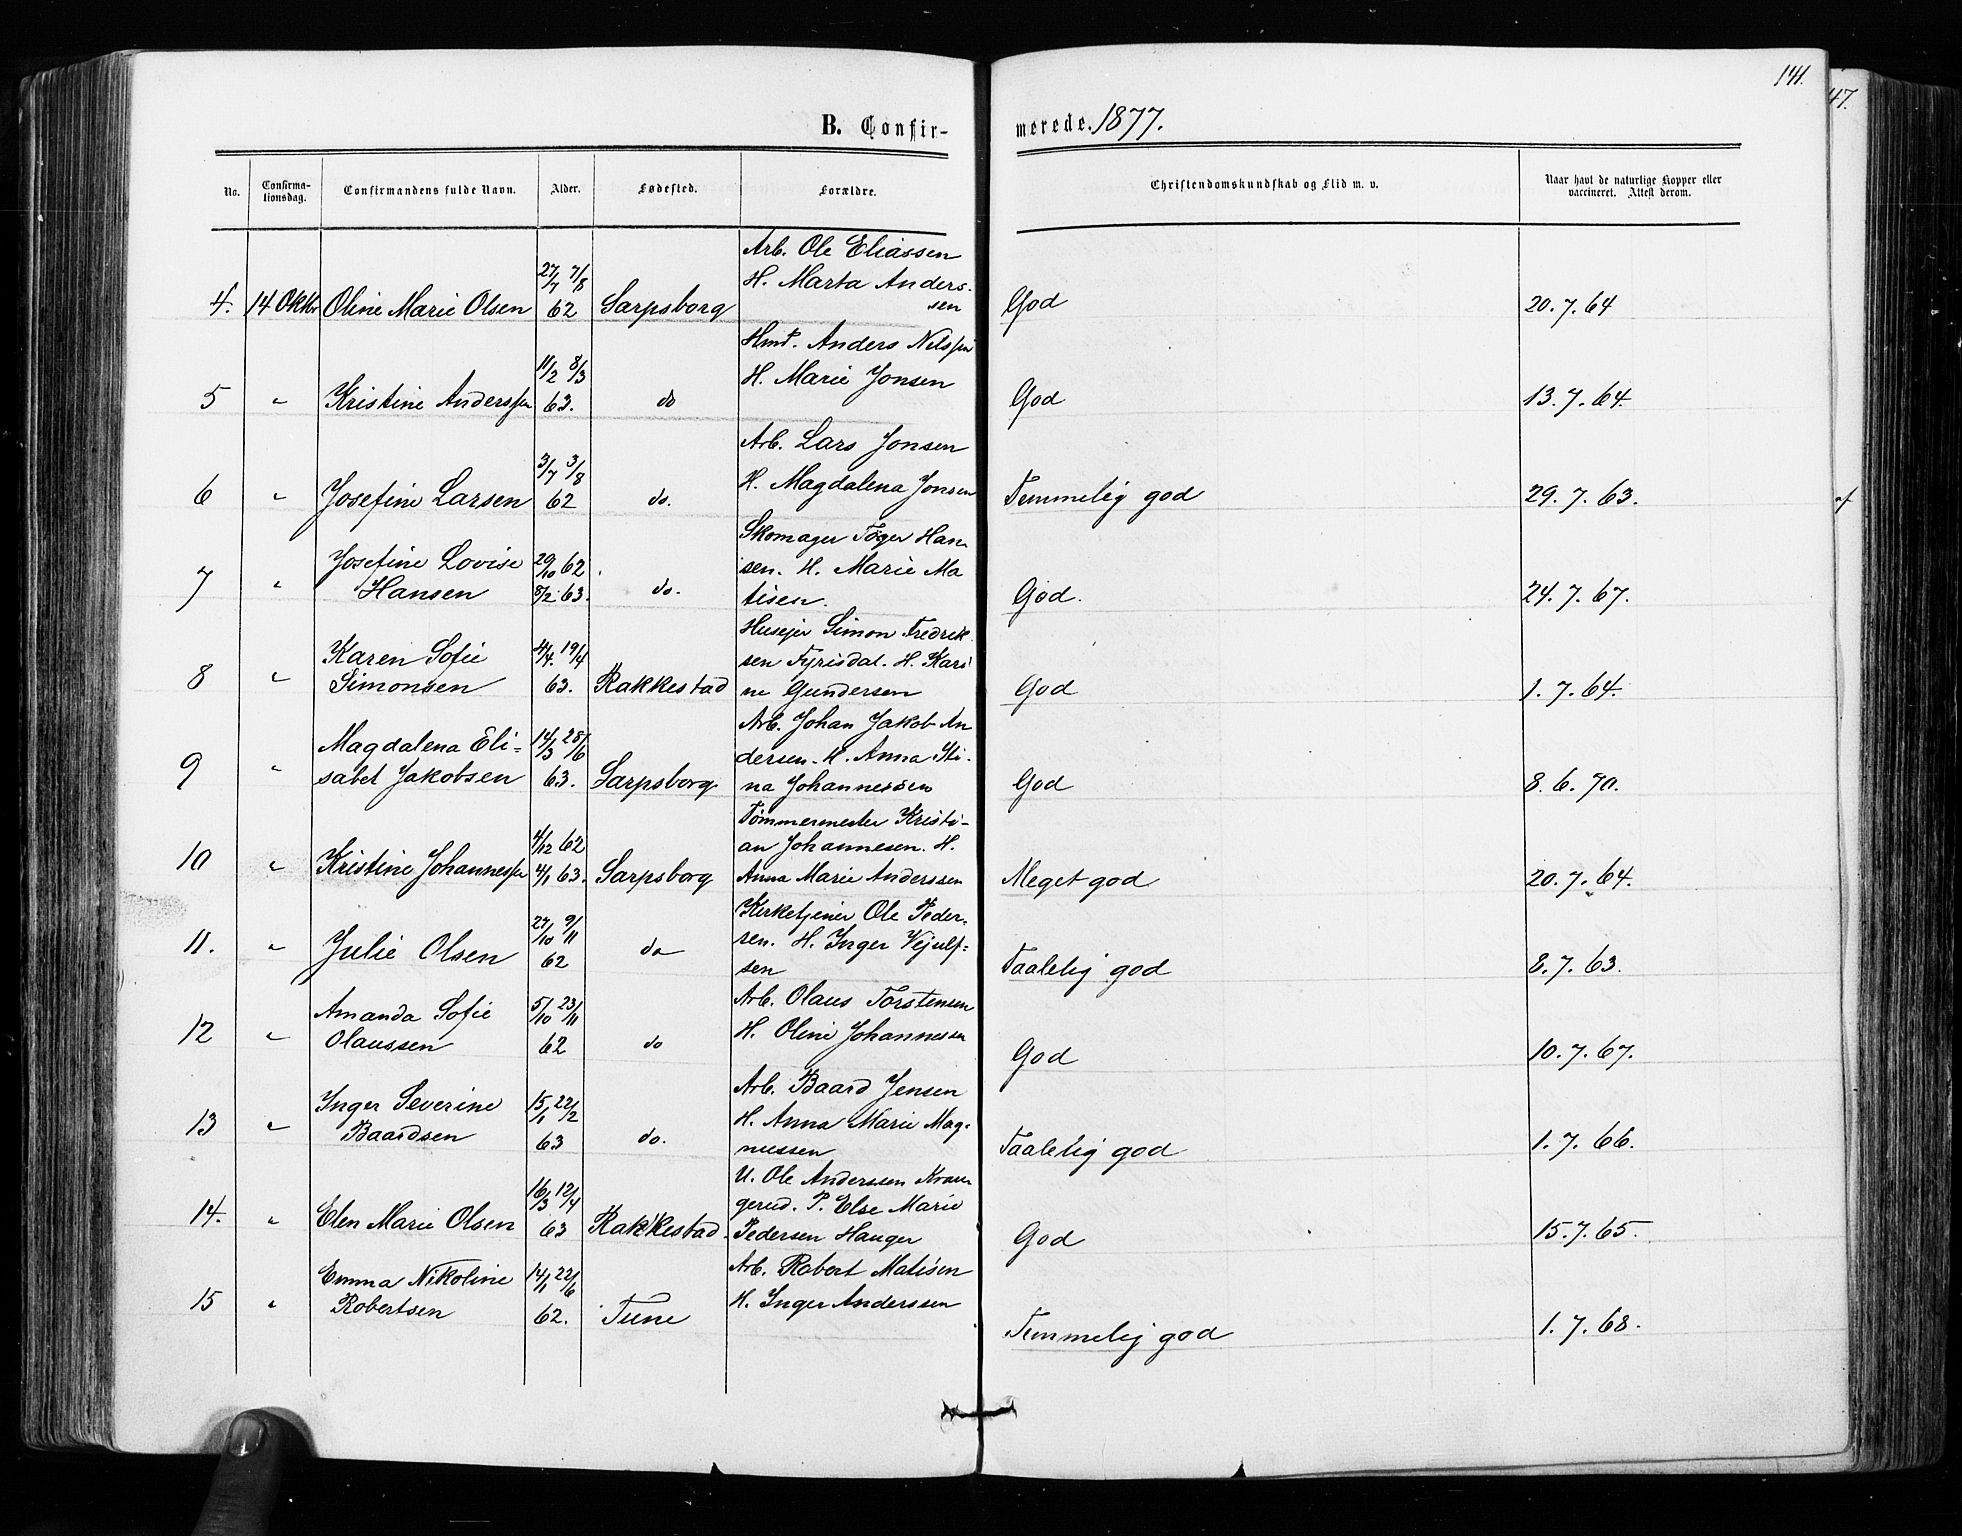 141.
47.
B. Confir-
merede. 1877.
No.
Confirma-
tionsdag.
Confirmandens fulde Navn.
Alder.
Fødested.
Forældre.
Christendomskundskab og Flid m. v.
Naar havt de naturlige Kopper eller
vaccineret. Attest derom.
Arb. Ole Eliassen
27/7 7/8 H. Marta Anders-
4. 14 Oktbr Oline Marie Olsen 62 Sarpsborg sen God 20.7.64
Hmd. Anders Nilssen
11/2 8/3 H. Marie Jonsen
5 " Kristine Anderssen 63. do God 13.7.64.
Arb. Lars Jonsen
3/7 3/8
6 " Josefine Larsen 62 do. H. Magdalena Jonsen Temmelig god 29.7.63.
Skomager Tøger Han-
Josefine Lovise 29/10 62 sen. H. Marie Ma
7 " Hansen 8/2 63. do. tisen. God. 24.7.67.
Husejer Simon Fredrik-
Karen Sofie 4/4. 19/4 sen Fyrisdal. H. Kari
8 " Simonsen 63. Rakkestad ne Gundersen God 1.7.64.
Arb. Johan Jakob An
Magdalena Eli- 14/3 28/6 dersen. H. Anna Sti-
9 " sabet Jakobsen 63. Sarpsborg na Johannessen God 8.6.70.
Tømmermester Kristi-
4/12 62 an Johannesen. H.
10 " Kristine Johannessen 4/1 63. Sarpsborg Anna Marie Anderssen Meget god 20.7.64.
Kirketjener Ole Peder-
27/10 9/11 sen. H. Inger Vejulf-
11. " Julie Olsen 62 do sen Taalelig god 8.7.63.
Arb. Olaus Torstensen
Amanda Sofie 5/10 23/11
12 " Olaussen 62 do H. Oline Johannessen God 10.7.67.
Arb. Baard Jensen
Inger Severine 15/1 22/2 H. Anna Marie Mag-
13 " Baardsen 63 do. nussen Taalelig god 1.7.66.
U. Ole Anderssen Kraug
16/3 12/4 gerud. P. Else Marie
14. " Elen Marie Olsen 63 Rakkestad. Pedersen Hauger God 15.7.65.
Emma Nikoline 14/1 22/6 Arb. Robert Matisen
15 " Robertsen 62. Tune H. Inger Anderssen Temmelig god 1.7.68.